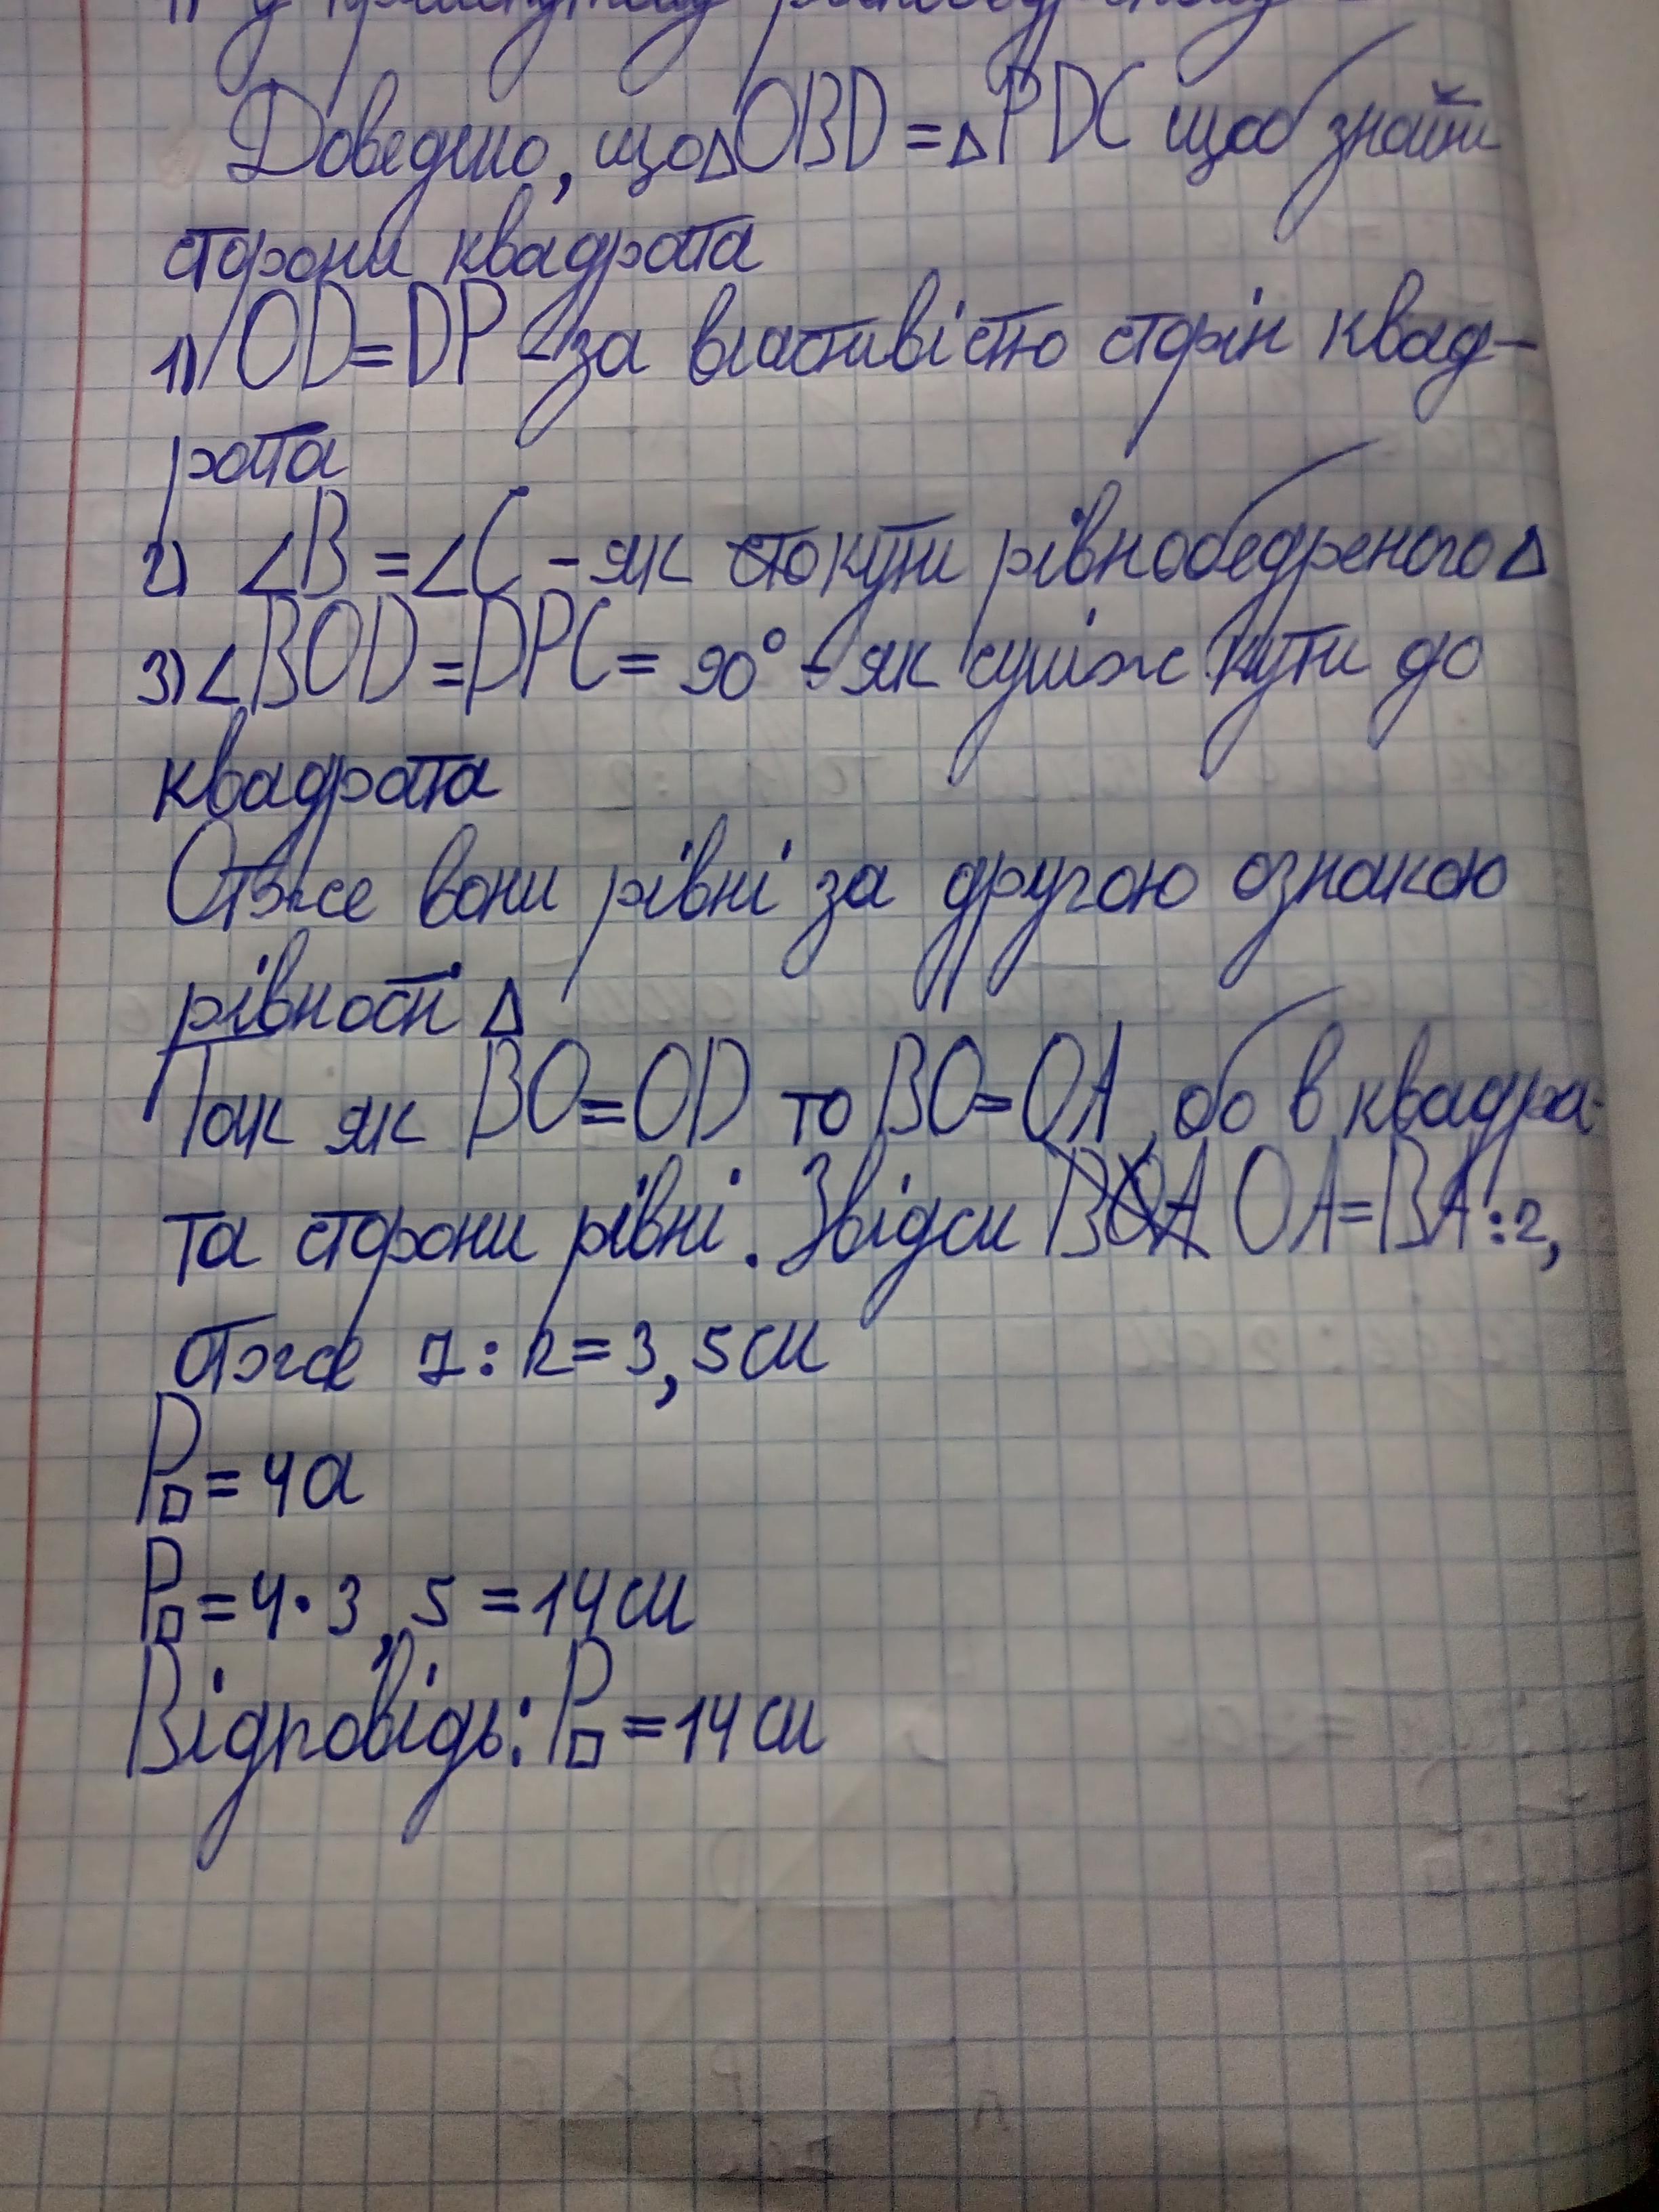 1) У прямокутному рівнобедреному
Доведемо, що △OBD = △PDC щоб знайти
сторони квадрата
1) OD = DP - за властивістю сторін квад-
рата
2) ∠B = ∠C - як кути рівнобедреного △
3) ∠BOD = DPC = 90° - як суміж кути до
квадрата
Отже вони рівні за другою ознакою
рівності △
Так як BO = OD то BO = OA, бо в квадра-
та сторони рівні. Звідси OA = BA : 2,
отже 7 : 2 = 3,5 см
P□ = 4a
P□ = 4 · 3,5 = 14 см
Відповідь: P□ = 14 см